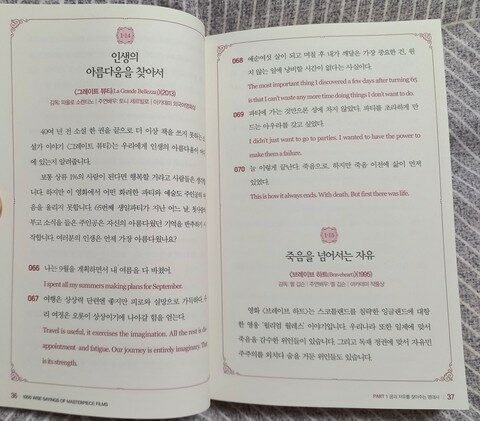 1-14
인생의
아름다움을 찾아서
〈그레이트 뷰티(La Grande Bellezza)〉(2013)
감독: 파올로 소렌티노 | 주연배우: 토니 세르빌로 | 아카데미 외국어영화상
40여 년 전 소설 한 권을 끝으로 더 이상 책을 쓰지 못하는 소
설가 이야기 〈그레이트 뷰티〉는 우리에게 인생의 아름다움이 어
에 있는지 알려줍니다.
보통 상류 1%의 사람이 된다면 행복할 거라고 사람들은 생각
니다. 하지만 이 영화에서 어떤 화려한 파티와 예술도 주인공의
음을 울리지 못합니다. 65번째 생일파티가 지난 어느 날, 첫사랑의
부고 소식을 들은 주인공은 자신의 아름다웠던 기억을 반추하기
작합니다. 여러분의 인생은 언제 가장 아름다웠나요?
066 나는 9월을 계획하면서 내 여름을 다 바쳤어.
I spent all my summers making plans for September.
067 여행은 상상력 단련엔 좋지만 피로와 실망으로 가득하다.
리 여정은 오롯이 상상이기에 나아갈 힘을 얻는다.
Travel is useful, it exercises the imagination. All the rest is
appointment and fatigue. Our journey is entirely imaginary. That
is its strength.
36 1000 WISE SAYINGS OF MASTERPIECE FILMS
068 예순여섯 살이 되고 며칠 후 내가 깨달은 가장 중요한 건, 원
치 않는 일에 낭비할 시간이 없다는 사실이다.
The most important thing I discovered a few days after turning 65
is that I can't waste any more time doing things I don't want to do.
069 파티에 가는 것만으론 성에 차지 않았다. 파티를 초라하게 만
드는 아우라를 갖고 싶었다.
I didn't just want to go to parties. I wanted to have the power to
make them a failure.
070 늘 이렇게 끝난다. 죽음으로. 하지만 죽음 이전에 삶이 먼저
있었다.
This is how it always ends. With death. But first there was life.
1-15
죽음을 넘어서는 자유
〈브레이브 하트(Braveheart)〉(1995)
감독: 멜 깁슨 | 주연배우: 멜 깁슨 | 아카데미 작품상
영화 〈브레이브 하트〉는 스코틀랜드를 침략한 잉글랜드에 대항
한 영웅 '윌리엄 월레스' 이야기입니다. 우리나라 또한 일제에 맞서
죽음을 감수한 위인들이 있습니다. 그리고 독재 정권에 맞서 자유민
주주의를 외치다 숨을 거둔 위인들도 있습니다.
PART 1 꿈과 자유를 찾아주는 명대사 37